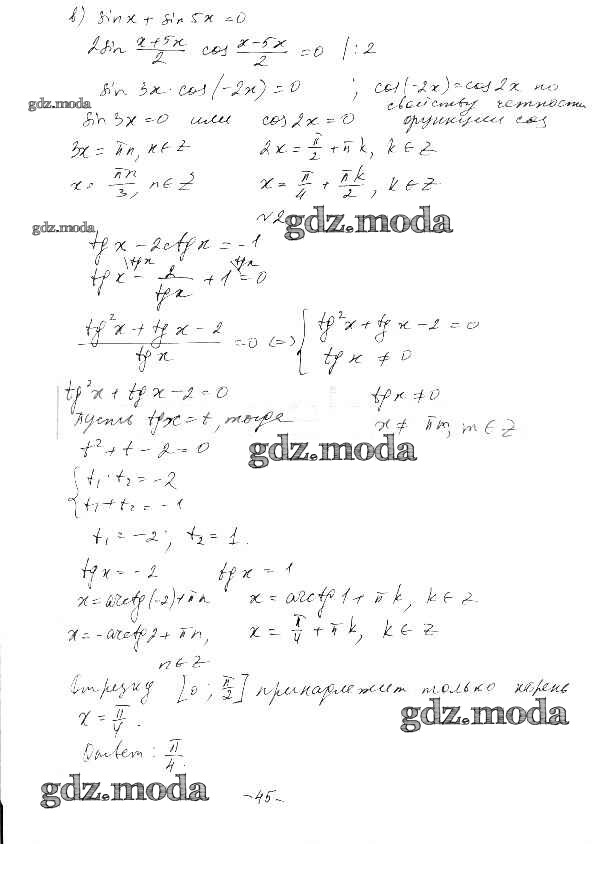 в) sinx + sin 5x = 0
2sin (x+5x)/2 cos (x-5x)/2 = 0 |:2
sin 3x · cos(-2x) = 0 ; cos(-2x) = cos2x по
gdz.moda свойству четности
sin 3x = 0 или cos 2x = 0 функции cos
3x = πn, n ∈ Z 2x = π/2 + πk, k ∈ Z
x = πn/3, n ∈ Z x = π/4 + πk/2, k ∈ Z
№2
gdz.moda gdz.moda
tg x - 2ctg x = -1
tg x \tg x - 2/tg x + 1 \tg x = 0
(tg²x + tg x - 2)/tg x = 0 <=> { tg²x + tg x - 2 = 0
tg x ≠ 0
tg²x + tg x - 2 = 0 tg x ≠ 0
Пусть tgx = t, тогда x ≠ πm, m ∈ Z
t² + t - 2 = 0
gdz.moda
{ t₁ · t₂ = -2
t₁ + t₂ = -1
t₁ = -2; t₂ = 1.
tg x = -2 tg x = 1
x = arctg(-2) + πn x = arctg 1 + πk, k ∈ Z
x = -arctg 2 + πn, x = π/4 + πk, k ∈ Z
n ∈ Z
Отрезку [0; π/2] принадлежит только корень
x = π/4.
gdz.moda
Ответ: π/4.
gdz.moda
-45-